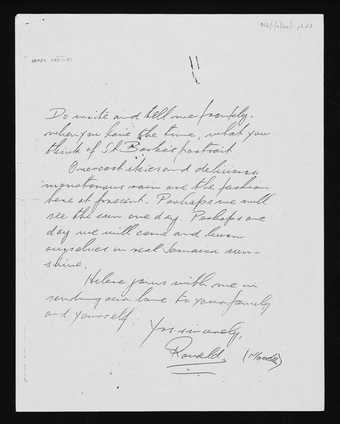 Do write and tell me frankly,
when you have the time, what you
think of S. Barker's portrait.
Overcast skies and
monotonous rain are the fashion
here at present. Perhaps we will
see the sun one day. Perhaps one
day we will come and
ourselves in real Jamaica sun-
shine.
Helena joins with me in
sending our love to your family
and yourself.
Yrs sincerely,
Ronald. (Moody)